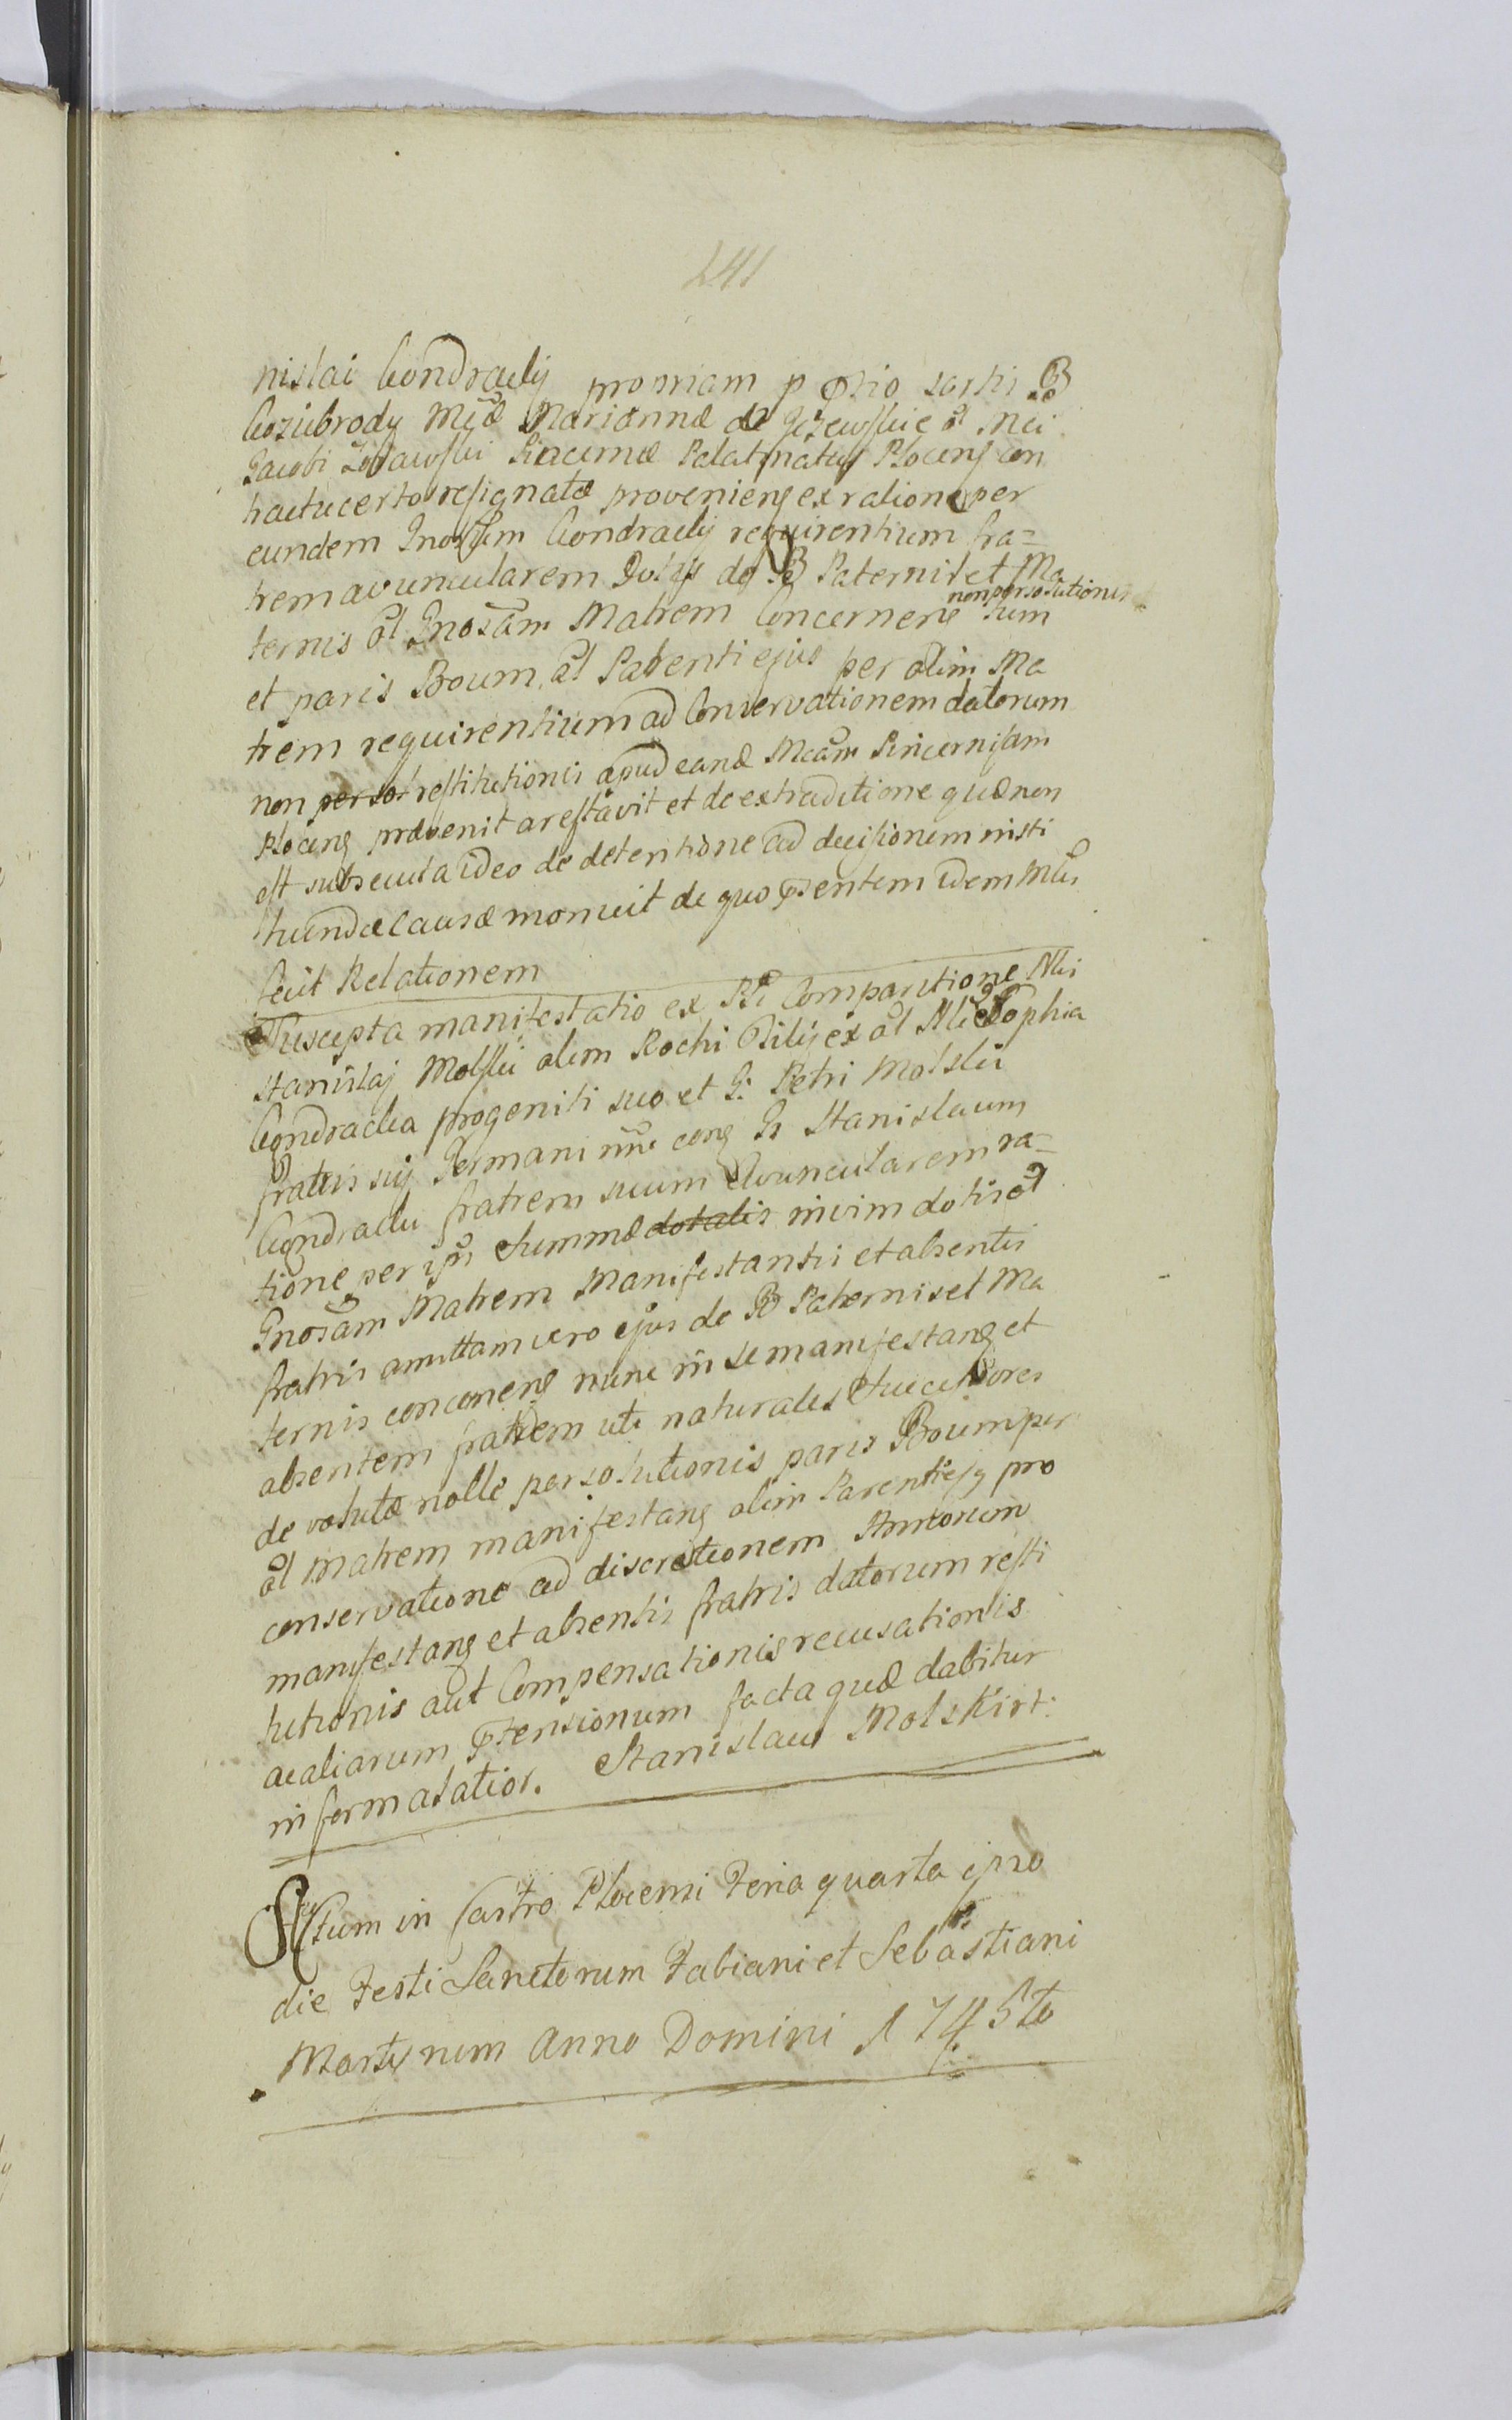 241
nislai Kondracky promam p ptio sortis B
Kozubrody Mcæ Mariannæ de Jeżewskie ol Mci
Jacobi Pincernæ Palatinatus Plocens con
tractu certo resignatæ proveniens ex ratione per
eundem Gnosum Kondracky requirentium fra=
trem avuncularem Dotis de B Paternis et Ma
ternis ol Gnosam Matrem Concernene non persolutionis Tum
et paris Boum ol Parenti ejus per olim Ma
trem requirentium ad Conservationem datorum
non persol restitutionis apud eand Mcam Pincernissam
Plocens prævenit arestavit et de extraditione quæ non
est subsecuta ideo de detentione ad decisionem insti
tuendæ Causæ monuit de quo pntem idem Mlis
fecit Relationem
Suscepta manifestatio ex Pli Comparitione Mci
Stanislaj Molski olim Rochi Filij ex ol Mca Sophia
Kondracka progeniti suo et G. Petri Molski
fratris sui Germani nne cong G Stanislaum
Kondracki fratrem suum Avuncularem ra=
tione per ipm Summæ dotalis nivim dotis ol
Gnosam Matrem Manifestantis et absentis
fratris amittam vero ejus de B Paternis et Ma
ternis concernens nunc in se manifestans et
absentem fratrem uti naturales Successores
de volutæ nolle persolutionis paris Boum per
ol Matrem manifestans olim Parenti ejq pro
conservatione ad discretionem Amborum
manifestans et absentis fratris datorum resti
tutionis aut Compensationis recusationis
ac aliarum ptensionum facta quæ dabitur
in forma latior. Stanislaus Molski rt.
Actum in Castro Plocensi Feria quarta ipso
die Festi Sanctorum Fabiani et Sebastiani
Martynum Anno Domini 1745to